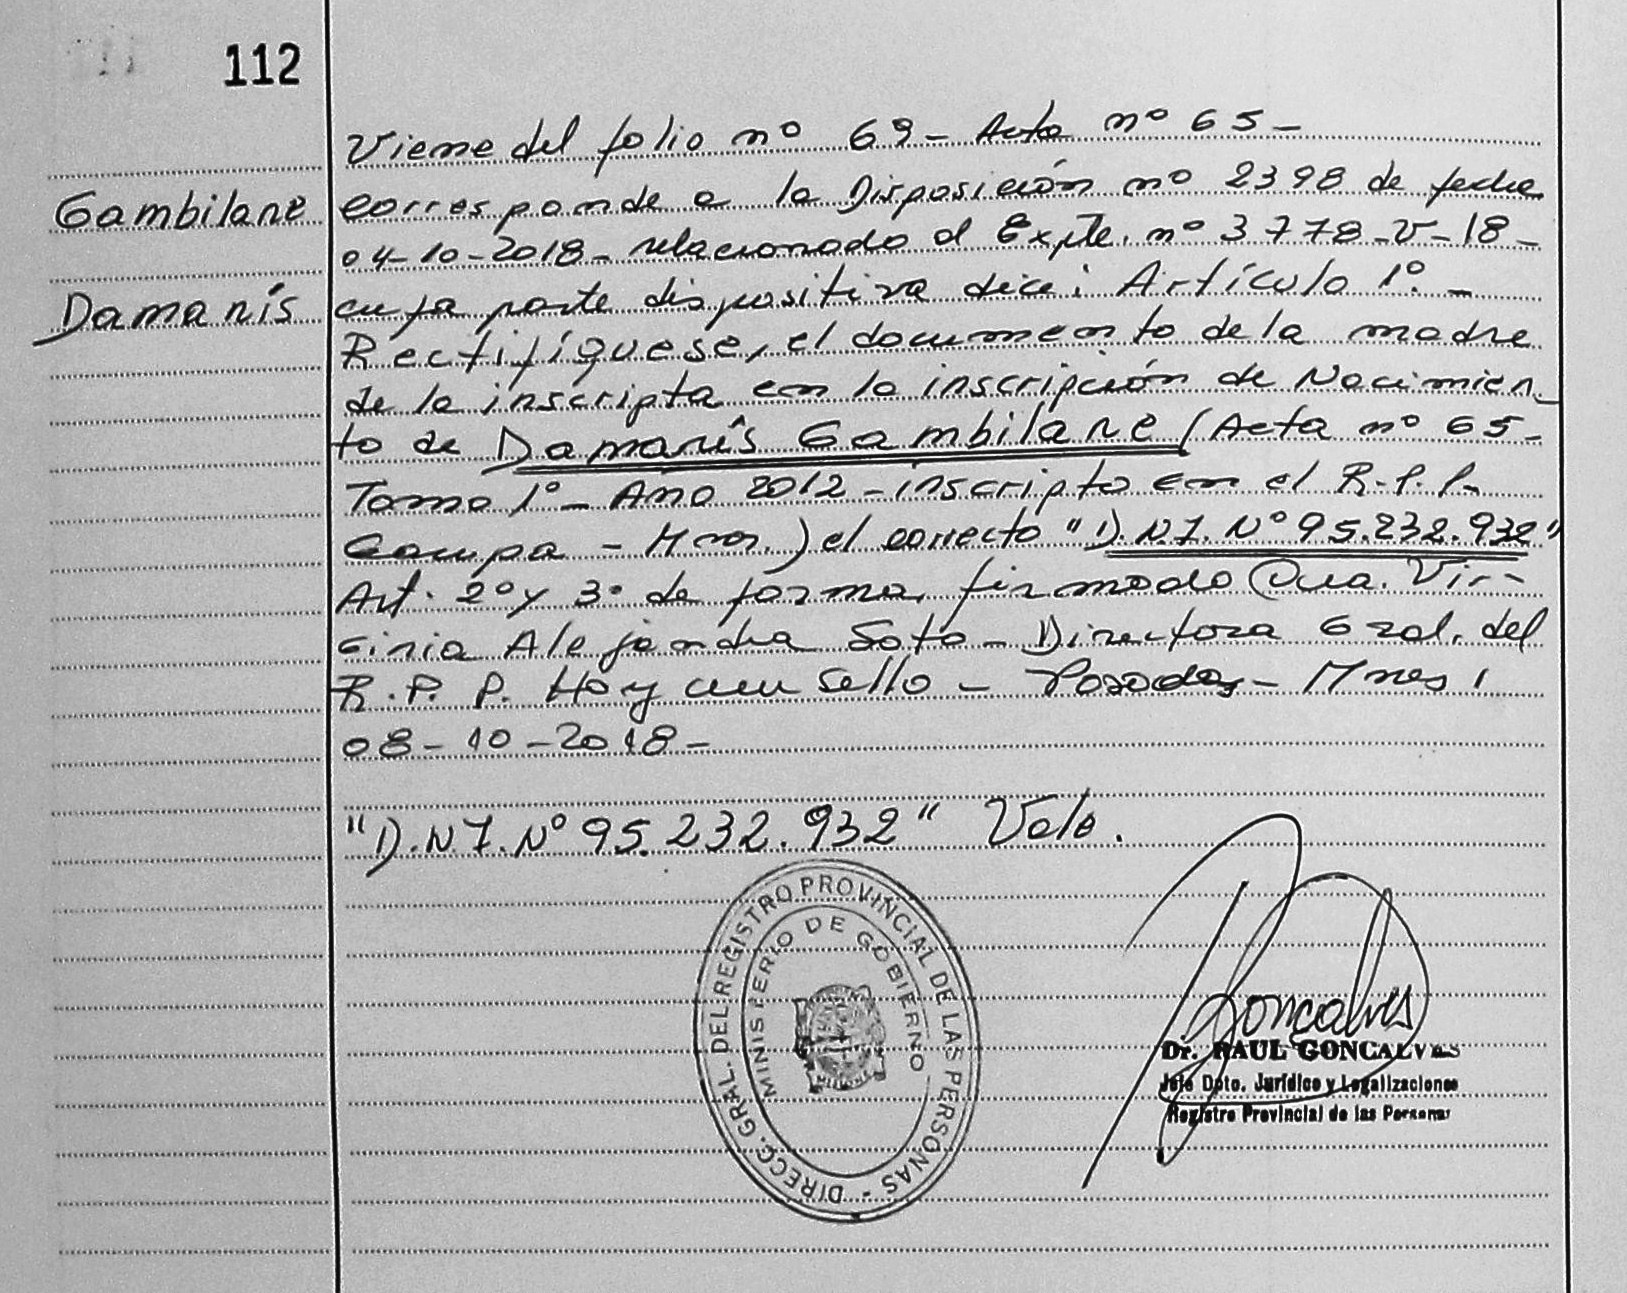 112
Viene del folio nº 69 - Acta nº 65 -
Gambilane
corresponde a la Disposición nº 2398 de fecha
04-10-2018 - relacionado al Expte. nº 3778-V-18 -
Damarís
cuya parte dispositiva dice: Artículo 1º. -
Rectifíquese, el documento de la madre
de la inscripta en la inscripción de Nacimien-
to de Damarís Gambilane (Acta nº 65 -
Tomo 1º - Año 2012 - inscripto en el R.P.P.
- Mnes.) el correcto "D.N.I. Nº 95.232.932"
Art. 2º y 3º de forma, firmado Dra. Vir-
ginia Alejandra Soto - Directora Gral. del
R.P.P. Hay un Sello - Posadas - Mnes,
08-10-2018 -
"D.N.I. Nº 95.232.932" Vale.
DIRECC. GRAL. DEL REGISTRO PROVINCIAL DE LAS PERSONAS -
MINISTERIO DE GOBIERNO
MISIONES
Gonçalves
Dr. RAUL GONCALVES
Jefe Dpto. Jurídico y Legalizaciones
Registro Provincial de las Personas